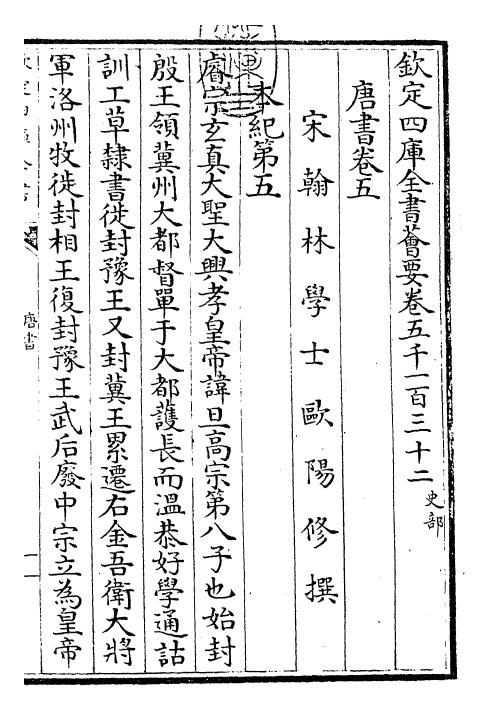 欽定四庫全書薈要卷五千一百三十二
史部
唐書卷五
宋翰林學士歐陽修撰
本紀第五
睿宗玄真大聖大興孝皇帝諱旦高宗第八子也始封
殷王領冀州大都督單于大都護長而溫恭好學通詁
訓工草隸書徙封豫王又封冀王累遷右金吾衛大將
軍洛州牧徙封相王復封豫王武后廢中宗立為皇帝
唐書
一